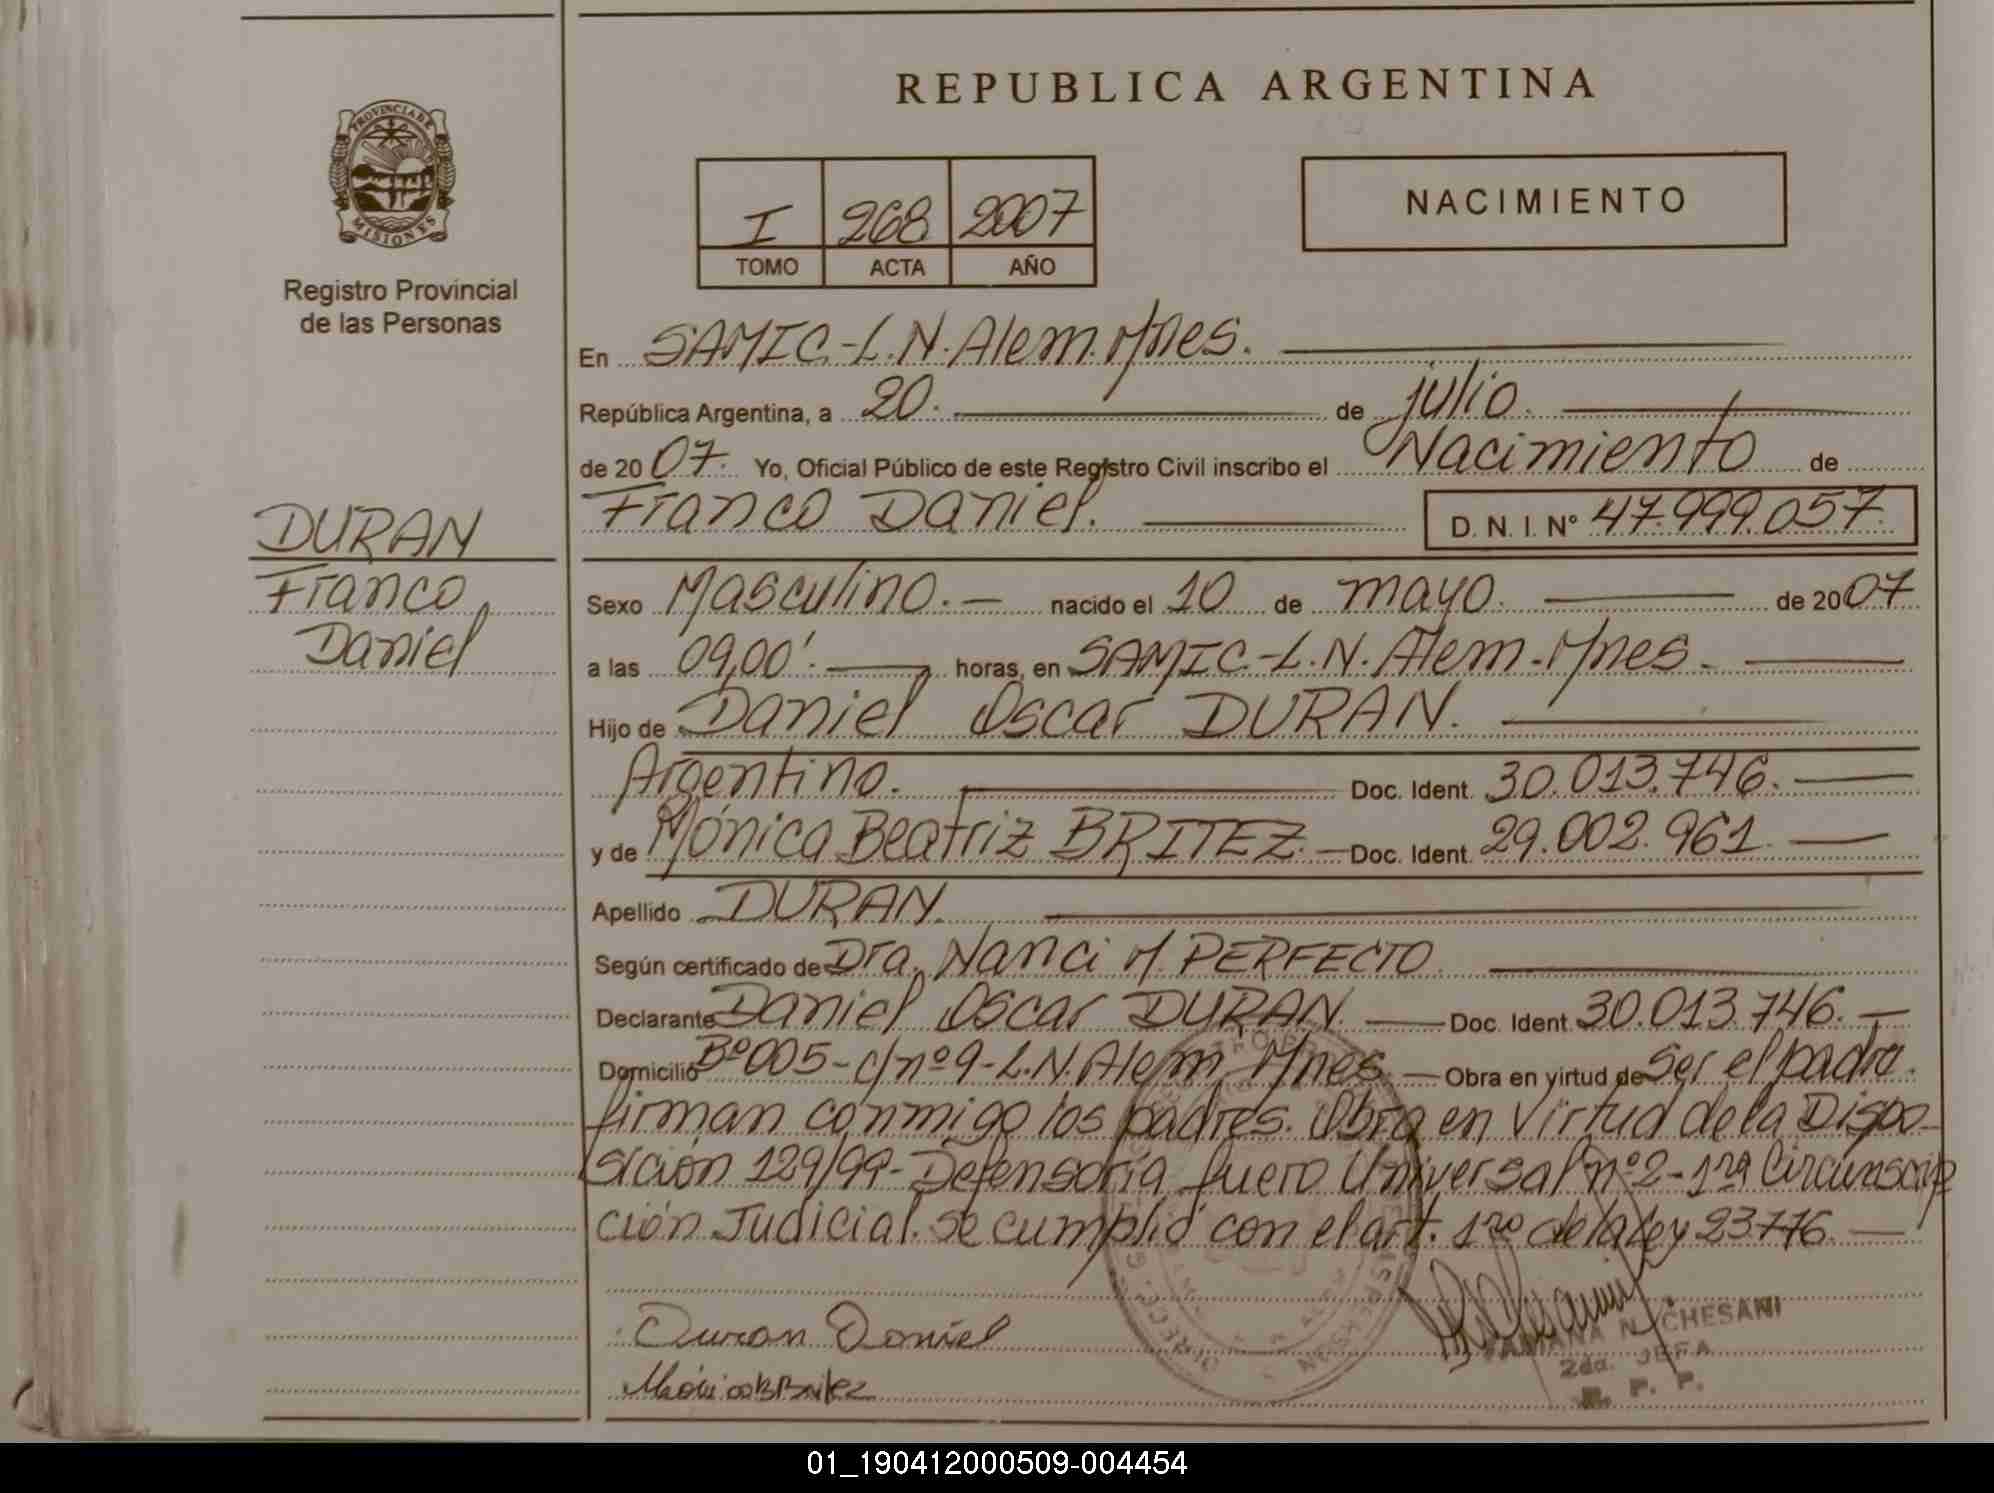 REPUBLICA ARGENTINA
PROVINCIA DE
MISIONES
Registro Provincial
de las Personas
I 268 2007
TOMO ACTA AÑO
NACIMIENTO
En SAMIC-L.N.Alem.Mnes.
República Argentina, a 20. de julio.
de 2007. Yo, Oficial Público de este Registro Civil inscribo el Nacimiento de
Franco Daniel. D. N. I. Nº 47.999.057.
DURAN
Franco
Daniel
Sexo Masculino.- nacido el 10 de mayo. de 2007
a las 09,00'. horas, en SAMIC.-L.N.Alem.-Mnes.
Hijo de Daniel Oscar DURAN.
Argentino. Doc. Ident. 30.013.746.
y de Mónica Beatriz BRITEZ.- Doc. Ident. 29.002.961.
Apellido DURAN.
Según certificado de Dra. Nanci M. PERFECTO
Declarante Daniel Oscar DURAN. Doc. Ident. 30.013.746.
Domicilio Bº005-c/nº9-L.N.Alem Mnes.- Obra en virtud de Ser el padre.
firman conmigo los padres. Obra en Virtud de la Dispo-
sición 129/99-Defensoría fuero Universal nº2-1ra Circunscrip
ción Judicial. Se cumplió con el art. 1ro de la ley 23776.
Duran Daniel
N. CHESANI
2da. JEFA
R. P. P.
01_190412000509-004454